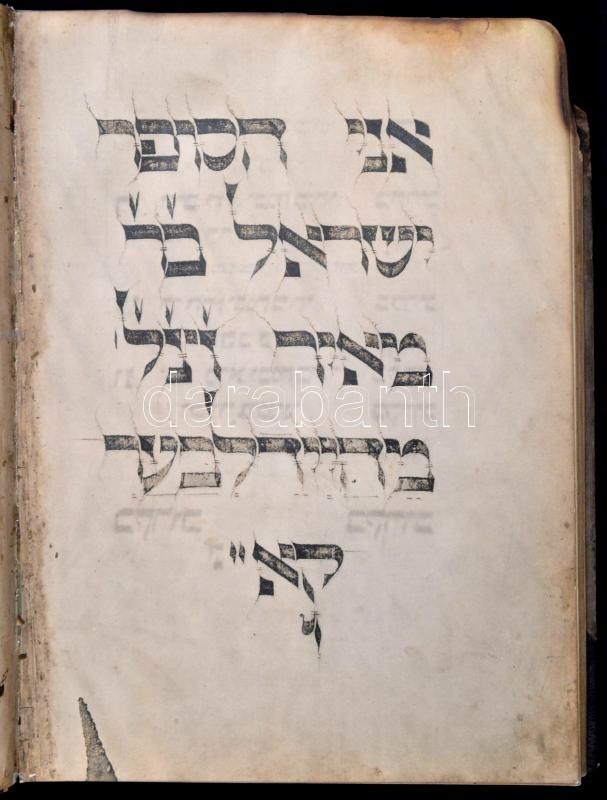 אני הסופר
ישראל ב״ר
מאיר ז״ל
מהיידלבער
darabanth